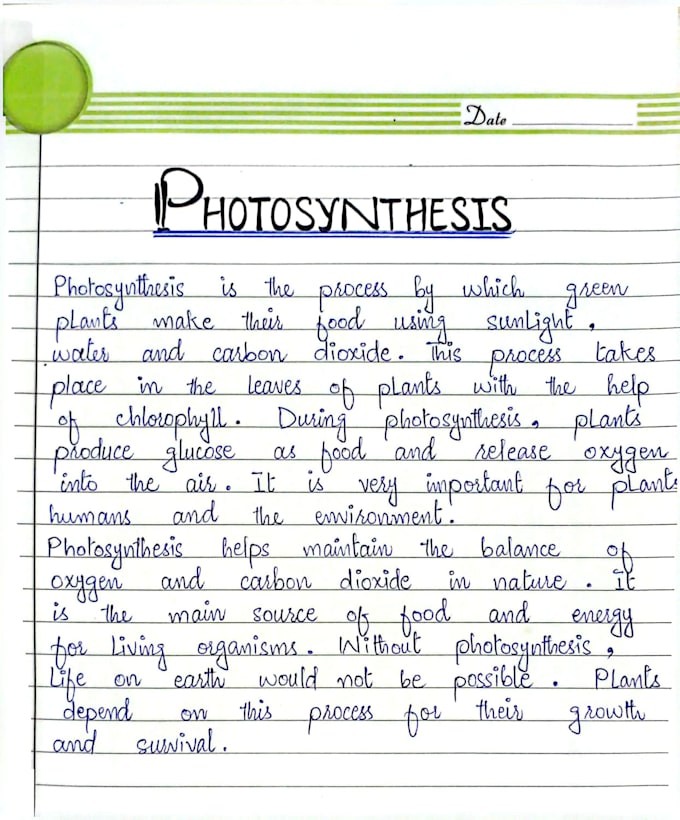 Date
PHOTOSYNTHESIS
Photosynthesis is the process by which green
plants make their food using sunlight,
water and carbon dioxide. This process takes
place in the leaves of plants with the help
of chlorophyll. During photosynthesis, plants
produce glucose as food and release oxygen
into the air. It is very important for plants
humans and the environment.
Photosynthesis helps maintain the balance of
oxygen and carbon dioxide in nature. It
is the main source of food and energy
for living organisms. Without photosynthesis,
Life on earth would not be possible. Plants
depend on this process for their growth
and survival.